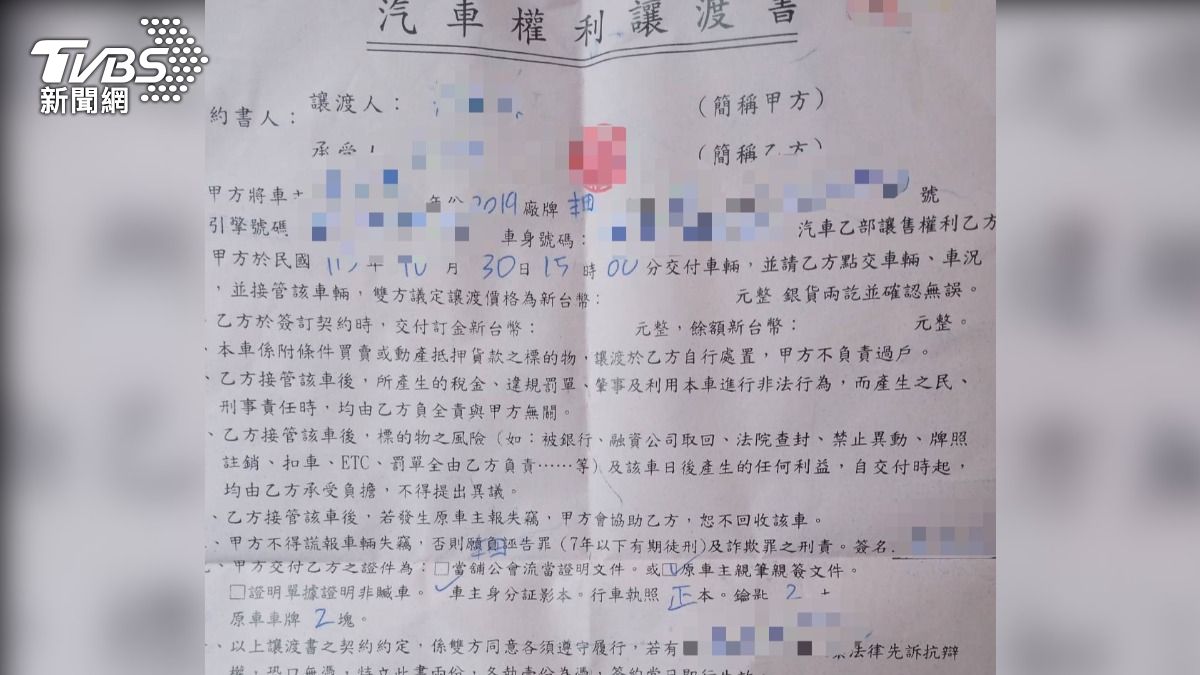 TVBS
新聞網
汽車權利讓渡書
約書人：
讓渡人：
（簡稱甲方）
（簡稱乙方）
甲方將車
2019 廠牌
號
引擎號碼
車身號碼：
汽車乙部讓售權利乙方
甲方於民國
月 30日 15時 00分交付車輛，並請乙方點交車輛、車況
，並接管該車輛，雙方議定讓渡價格為新台幣：
元整 銀貨兩訖並確認無誤。
乙方於簽訂契約時，交付訂金新台幣：
元整，餘額新台幣：
元整。
、本車係附條件買賣或動產抵押貸款之標的物，讓渡於乙方自行處置，甲方不負責過戶。
、乙方接管該車後，所產生的稅金、違規罰單、肇事及利用本車進行非法行為，而產生之民、
刑事責任時，均由乙方負全責與甲方無關。
、乙方接管該車後，標的物之風險（如：被銀行、融資公司取回、法院查封、禁止異動、牌照
註銷、扣車、ETC、罰單全由乙方負責……等）及該車日後產生的任何利益，自交付時起，
均由乙方承受負擔，不得提出異議。
、乙方接管該車後，若發生原車主報失竊，甲方會協助乙方，恕不回收該車。
、甲方不得謊報車輛失竊，否則願負誣告罪（7年以下有期徒刑）及詐欺罪之刑責。簽名
、甲方交付乙方之證件為：□當舖公會流當證明文件。或□原車主親筆親簽文件。
□證明單據證明非贓車。✓車主身分証影本。行車執照 正本。鑰匙 2
原車車牌 2塊。
、以上讓渡書之契約約定，係雙方同意各須遵守履行，若有
法律先訴抗辯